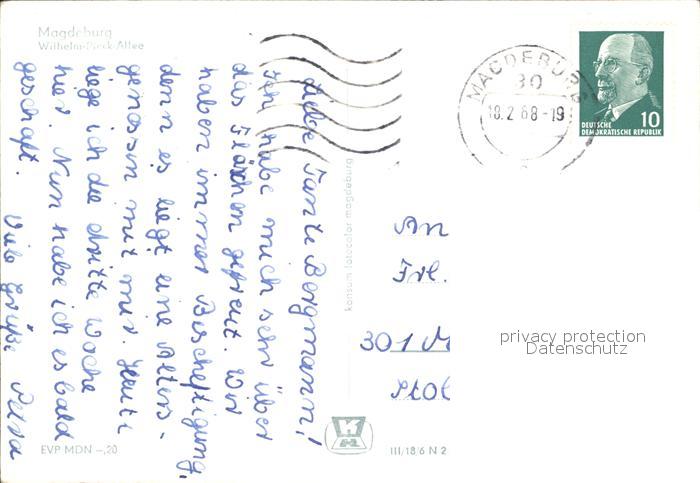 Magdeburg
Wilhelm-Pieck-Allee
Liebe Tante Bergmann!
Ich habe mich sehr über
das Fläschen gefreut. Wir
haben immer Bescheftigung,
denn es liegt eine Alters-
genossin mit mir. Heute
liege ich die dritte Woche
hier. Nun habe ich es bald
geschaft.
Viele Grüße Petra
EVP MDN –,20
konsum fotocolor magdeburg
MAGDEBURG
30
18.2.68-19
10
DEUTSCHE
DEMOKRATISCHE REPUBLIK
An
Frl.
301 M
Stol
privacy protection
Datenschutz
III/18/6 N 2